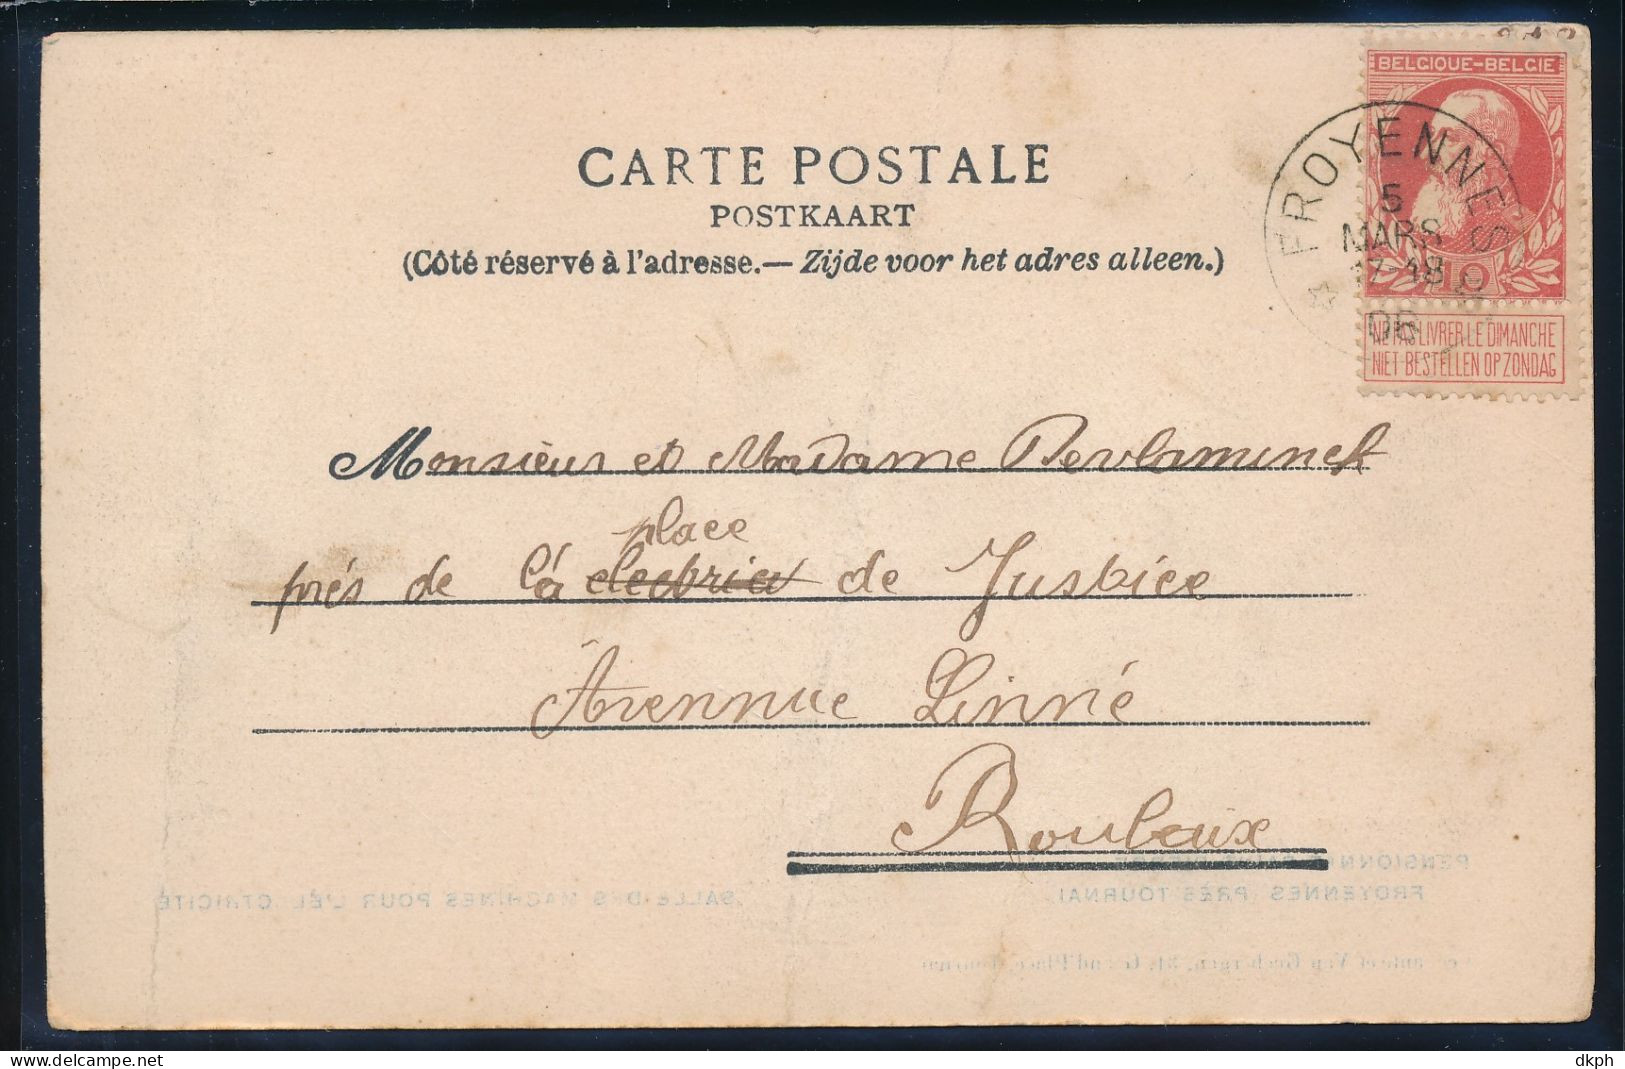 BELGIQUE-BELGIE
10
NE PAS LIVRER LE DIMANCHE
NIET BESTELLEN OP ZONDAG
FROYENNES
5
MARS
17-18
06
CARTE POSTALE
POSTKAART
(Côté réservé à l'adresse.— Zijde voor het adres alleen.)
Monsieur et Madame Devlaminck
place
prés de l'a de Justice
Avennue Linné
Roubaix
PENSIONNAT
FROYENNES PRÈS TOURNAI
SALLE DES MACHINES POUR L'ÉLECTRICITÉ
dkph